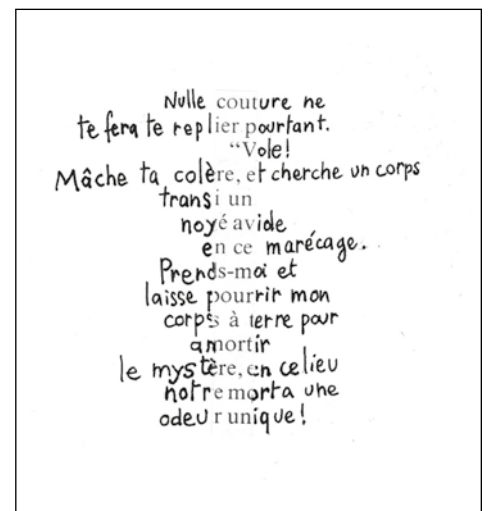 Nulle couture ne
te fera te replier pourtant.
“Vole!
Mâche ta colère, et cherche un corps
transi un
noyé avide
en ce marécage.
Prends-moi et
laisse pourrir mon
corps à terre pour
amortir
le mystère, en ce lieu
notre mort a une
odeur unique!